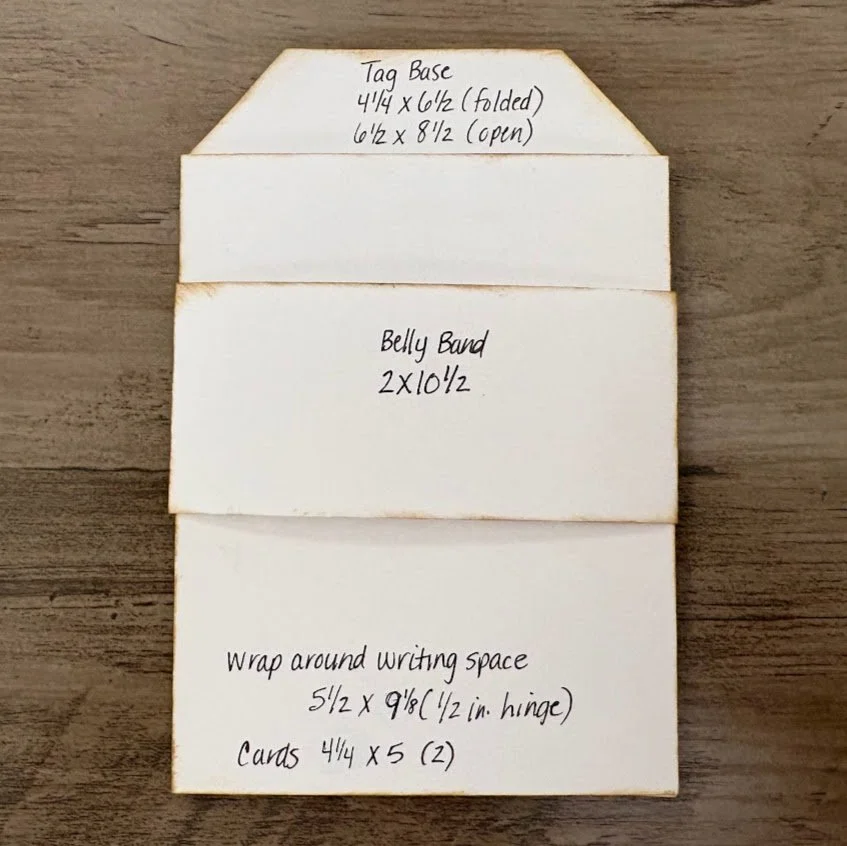 Tag Base
4 1/4 x 6 1/2 (folded)
6 1/2 x 8 1/2 (open)
Belly Band
2x10 1/2
Wrap around writing space
5 1/2 x 9 1/8 (1/2 in. hinge)
Cards 4 1/4 x 5 (2)